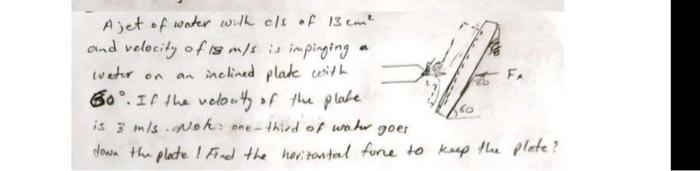 A jet of water with c/s of 13 cm²
and velocity of 18 m/s is impinging a
water on an inclined plate with
60°. If the velocity of the plate
is 3 m/s. Note: one-third of water goes
down the plate! Find the horizontal force to keep the plate?
Fx
60
60